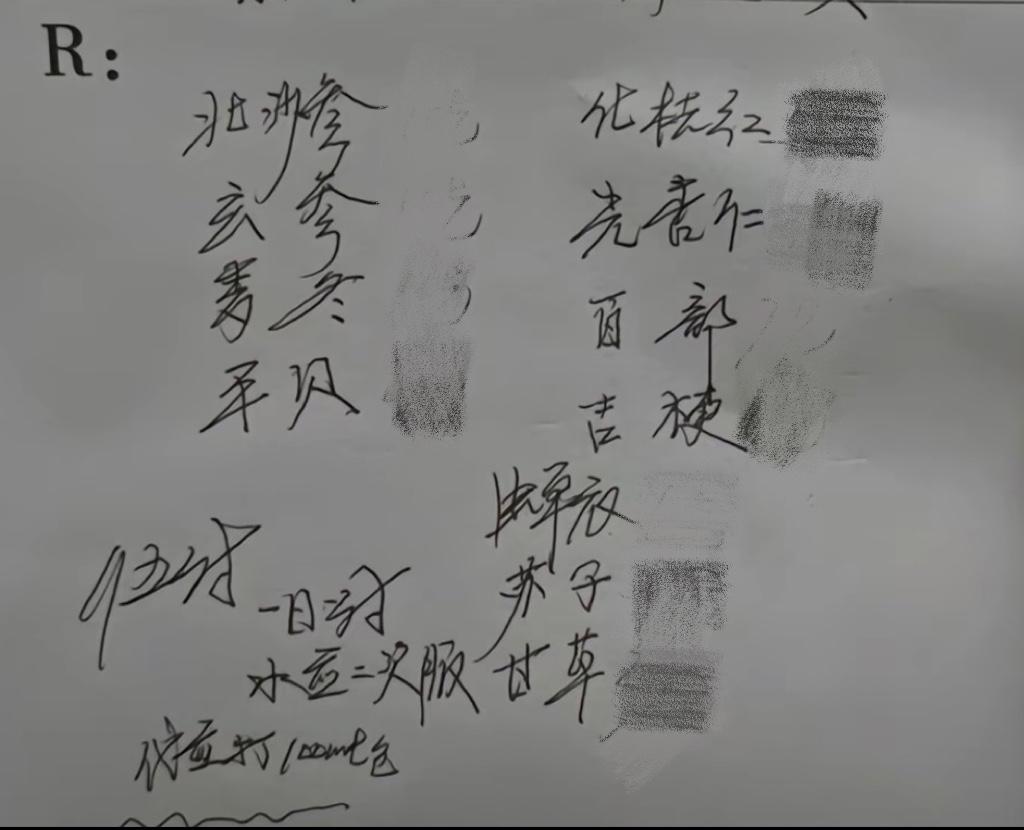 R：
北沙参 化桔红
玄参 光杏仁
麦冬 百部
平贝 吉梗
蝉衣
伍付 苏子
一日一付
水煎二次服 甘草
代煎打100ml包